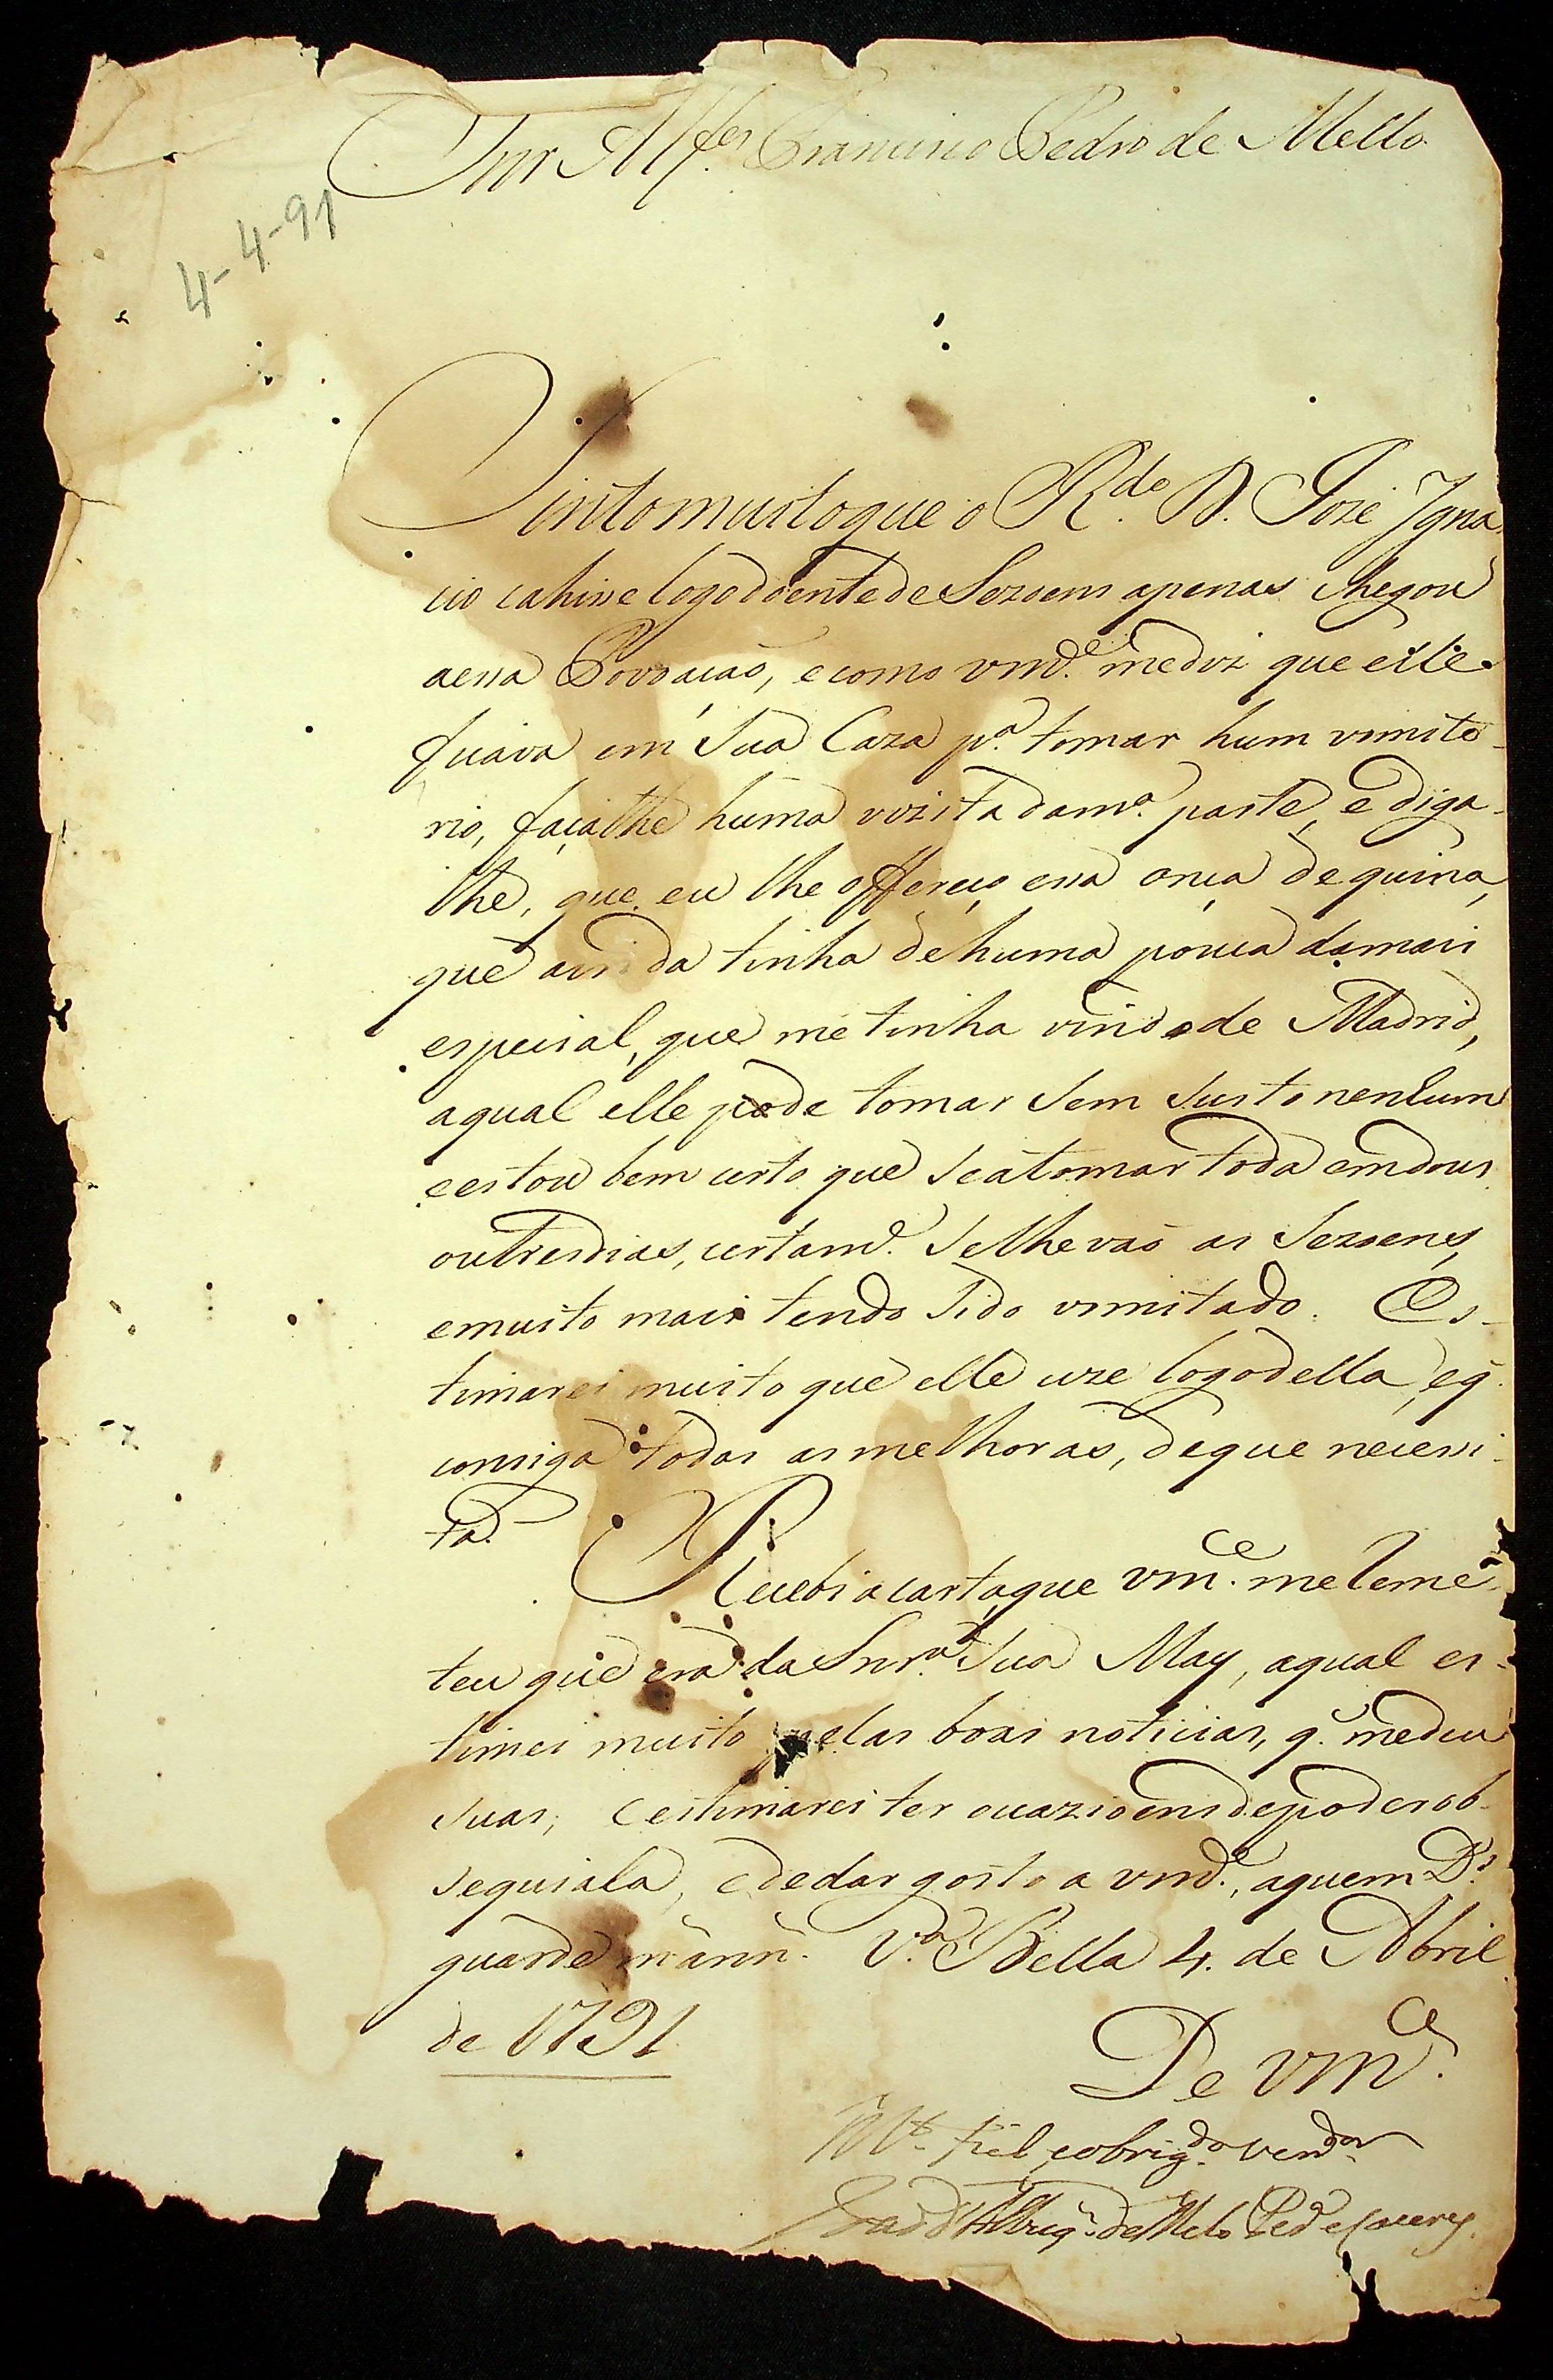 Snr Alfes Francisco Pedro de Mello
4-4-91
Sinto muito que o Rdo D. Joze Igna
cio cahisse logo doente de Sezoens apenas chegou
a essa Povoacaõ, e como vmce me diz que elle
ficava em sua Caza pa tomar hum vomito-
rio, façalhe huma vizita da ma parte, e diga-
lhe, que eu lhe offereço essa onça de quina,
que ainda tinha de huma pouca da mais
especial, que me tinha vindo de Madrid,
a qual elle pode tomar sem susto nenhum
e estou bem certo que se a tomar toda em dous
ou tres dias, certame se lhe vaõ as Sezoens,
e muito mais tendo sido vomitado. Es-
timarei muito que elle uze logo della, e q
consiga todas as melhoras, de que necessi-
ta.
Recebi a carta, que vmce me reme-
teu que era da Snra sua May, a qual es-
timei muito pelas boas noticias, q me deu
suas; e estimarei ter ocazioens de poder ob-
sequiala, e de dar gosto a vmce, a quem Ds
guarde m ann. Va Bella 4. de Abril
de 1791
De vmce
Mto fiel e obrigdo vendor
Joaõ d'Albuqe de Melo Pera e Caceres